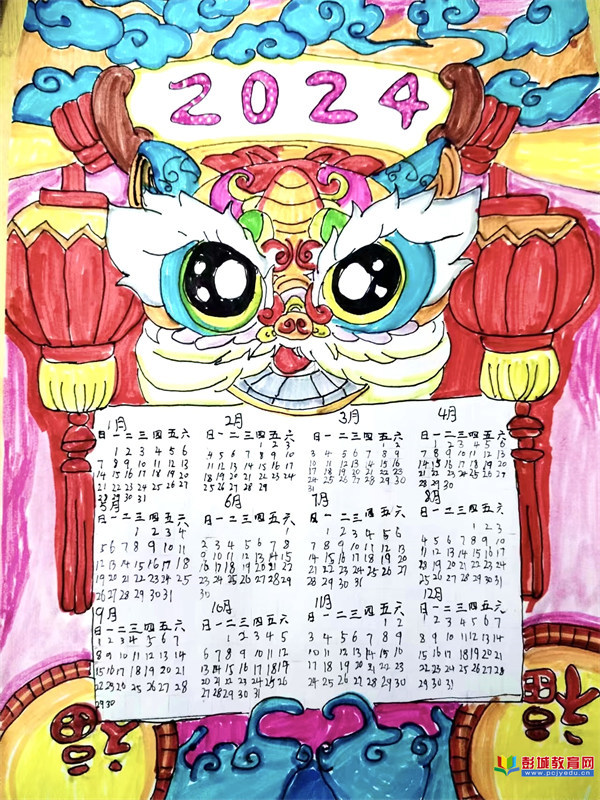 2024
1月
日 一 二 三 四 五 六
1 2 3 4 5 6
7 8 9 10 11 12 13
14 15 16 17 18 19 20
21 22 23 24 25 26 27
28 29 30 31
2月
日 一 二 三 四 五 六
1 2 3
4 5 6 7 8 9 10
11 12 13 14 15 16 17
18 19 20 21 22 23 24
25 26 27 28 29
3月
日 一 二 三 四 五 六
1 2
3 4 5 6 7 8 9
10 11 12 13 14 15 16
17 18 19 20 21 22 23
24 25 26 27 28 29 30
31
4月
日 一 二 三 四 五 六
1 2 3 4 5 6
7 8 9 10 11 12 13
14 15 16 17 18 19 20
21 22 23 24 25 26 27
28 29 30
5月
日 一 二 三 四 五 六
1 2 3 4
5 6 7 8 9 10 11
12 13 14 15 16 17 18
19 20 21 22 23 24 25
26 27 28 29 30 31
6月
日 一 二 三 四 五 六
1
2 3 4 5 6 7 8
9 10 11 12 13 14 15
16 17 18 19 20 21 22
23 24 25 26 27 28 29
30
7月
日 一 二 三 四 五 六
1 2 3 4 5 6
7 8 9 10 11 12 13
14 15 16 17 18 19 20
21 22 23 24 25 26 27
28 29 30 31
8月
日 一 二 三 四 五 六
1 2 3
4 5 6 7 8 9 10
11 12 13 14 15 16 17
18 19 20 21 22 23 24
25 26 27 28 29 30 31
9月
日 一 二 三 四 五 六
1 2 3 4 5 6 7
8 9 10 11 12 13 14
15 16 17 18 19 20 21
22 23 24 25 26 27 28
29 30
10月
日 一 二 三 四 五 六
1 2 3 4 5
6 7 8 9 10 11 12
13 14 15 16 17 18
20 21 22 23 24 25 26
27 28 29 30 31
11月
日 一 二 三 四 五 六
1 2
3 4 5 6 7 8 9
10 11 12 13 14 15 16
17 18 19 20 21 22 23
24 25 26 27 28 29 30
12月
日 一 二 三 四 五 六
1 2 3 4 5 6 7
8 9 10 11 12 13 14
15 16 17 18 19 20 21
22 23 24 25 26 27 28
29 30 31
福
福
彭城教育网
www.pcjyedu.cn